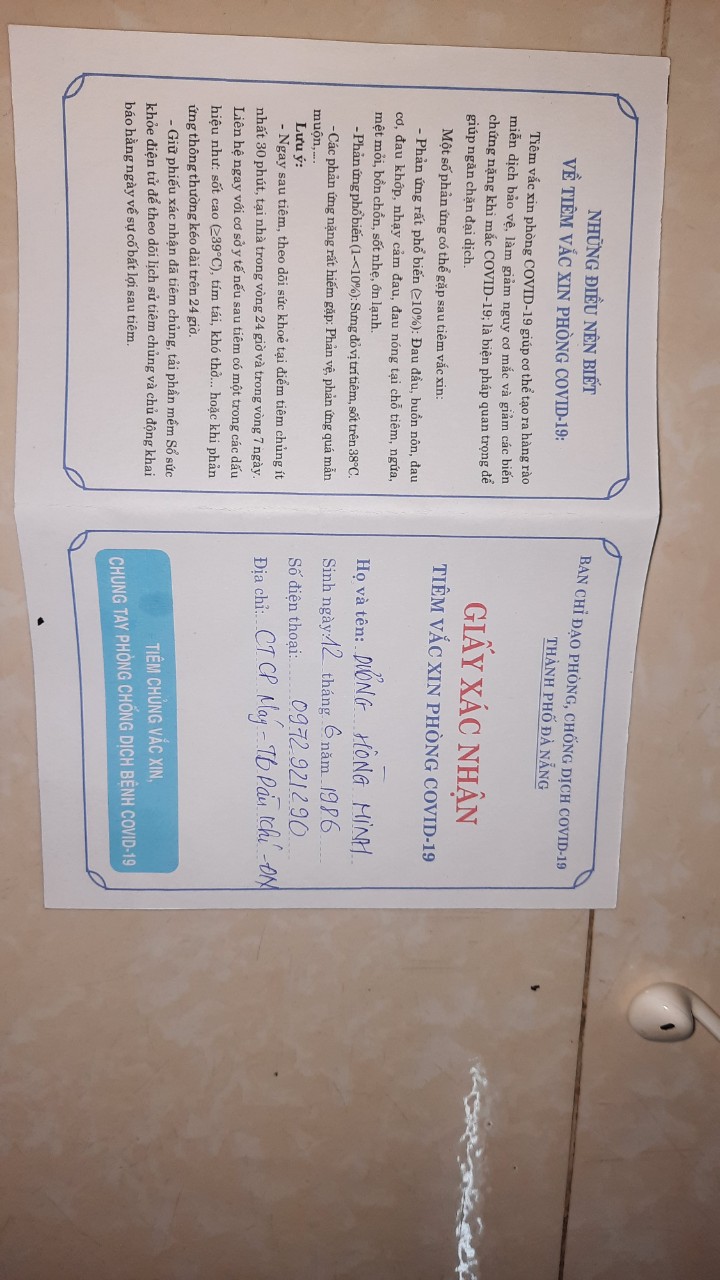 NHỮNG ĐIỀU NÊN BIẾT
VỀ TIÊM VẮC XIN PHÒNG COVID-19:
Tiêm vắc xin phòng COVID-19 giúp cơ thể tạo ra hàng rào
miễn dịch bảo vệ, làm giảm nguy cơ mắc và giảm các biến
chứng nặng khi mắc COVID-19; là biện pháp quan trọng để
giúp ngăn chặn đại dịch.
Một số phản ứng có thể gặp sau tiêm vắc xin:
- Phản ứng rất phổ biến (≥10%): Đau đầu, buồn nôn, đau
cơ, đau khớp, nhạy cảm đau, đau nóng tại chỗ tiêm, ngứa,
mệt mỏi, bồn chồn, sốt nhẹ, ớn lạnh.
- Phản ứng phổ biến (1-<10%): Sưng đỏ vị trí tiêm, sốt trên 38°C.
- Các phản ứng nặng rất hiếm gặp: Phản vệ, phản ứng quá mẫn
muộn,...
Lưu ý:
- Ngay sau tiêm, theo dõi sức khoẻ tại điểm tiêm chủng ít
nhất 30 phút, tại nhà trong vòng 24 giờ và trong vòng 7 ngày.
Liên hệ ngay với cơ sở y tế nếu sau tiêm có một trong các dấu
hiệu như: sốt cao (≥39°C), tím tái, khó thở... hoặc khi phản
ứng thông thường kéo dài trên 24 giờ.
- Giữ phiếu xác nhận đã tiêm chủng, tải phần mềm Sổ sức
khỏe điện tử để theo dõi lịch sử tiêm chủng và chủ động khai
báo hàng ngày về sự cố bất lợi sau tiêm.
BAN CHỈ ĐẠO PHÒNG, CHỐNG DỊCH COVID-19
THÀNH PHỐ ĐÀ NẴNG
GIẤY XÁC NHẬN
TIÊM VẮC XIN PHÒNG COVID-19
Họ và tên: DƯƠNG HỒNG MINH
Sinh ngày: 12 tháng 6 năm 1986
Số điện thoại: 0972.921290
Địa chỉ: CTCP Máy - Tb Dầu Khí - ĐN
TIÊM CHỦNG VẮC XIN,
CHUNG TAY PHÒNG CHỐNG DỊCH BỆNH COVID-19